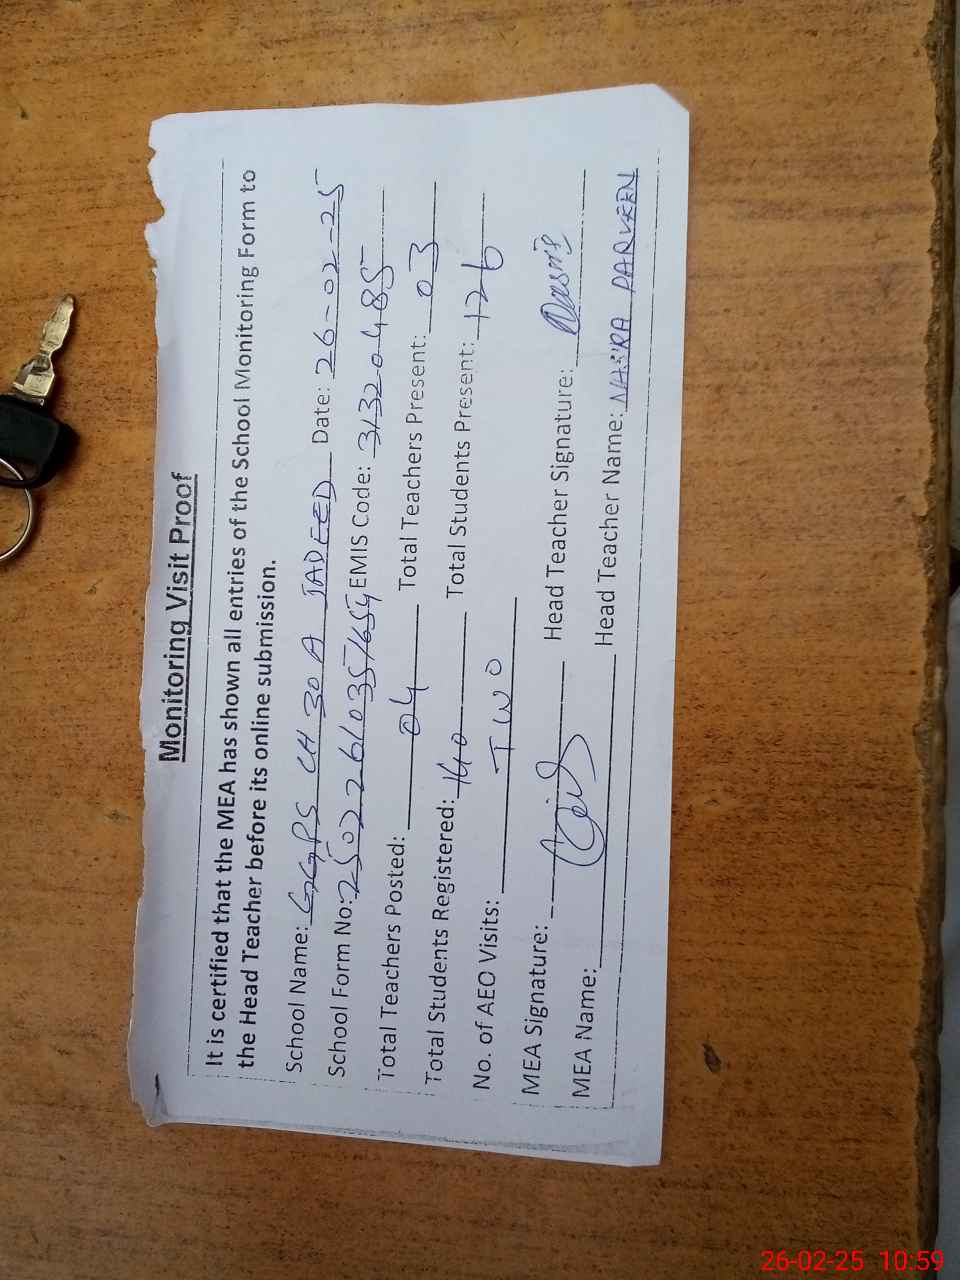 Monitoring Visit Proof
It is certified that the MEA has shown all entries of the School Monitoring Form to
the Head Teacher before its online submission.
School Name: GGPS CH 30 A JADEED Date: 26-02-25
School Form No: 25022610357654 EMIS Code: 31320485
Total Teachers Posted: 04 Total Teachers Present: 03
Total Students Registered: 140 Total Students Present: 126
No. of AEO Visits: TWO
MEA Signature: Head Teacher Signature:
MEA Name: Head Teacher Name: NASIRA PARVEEN
26-02-25 10:59